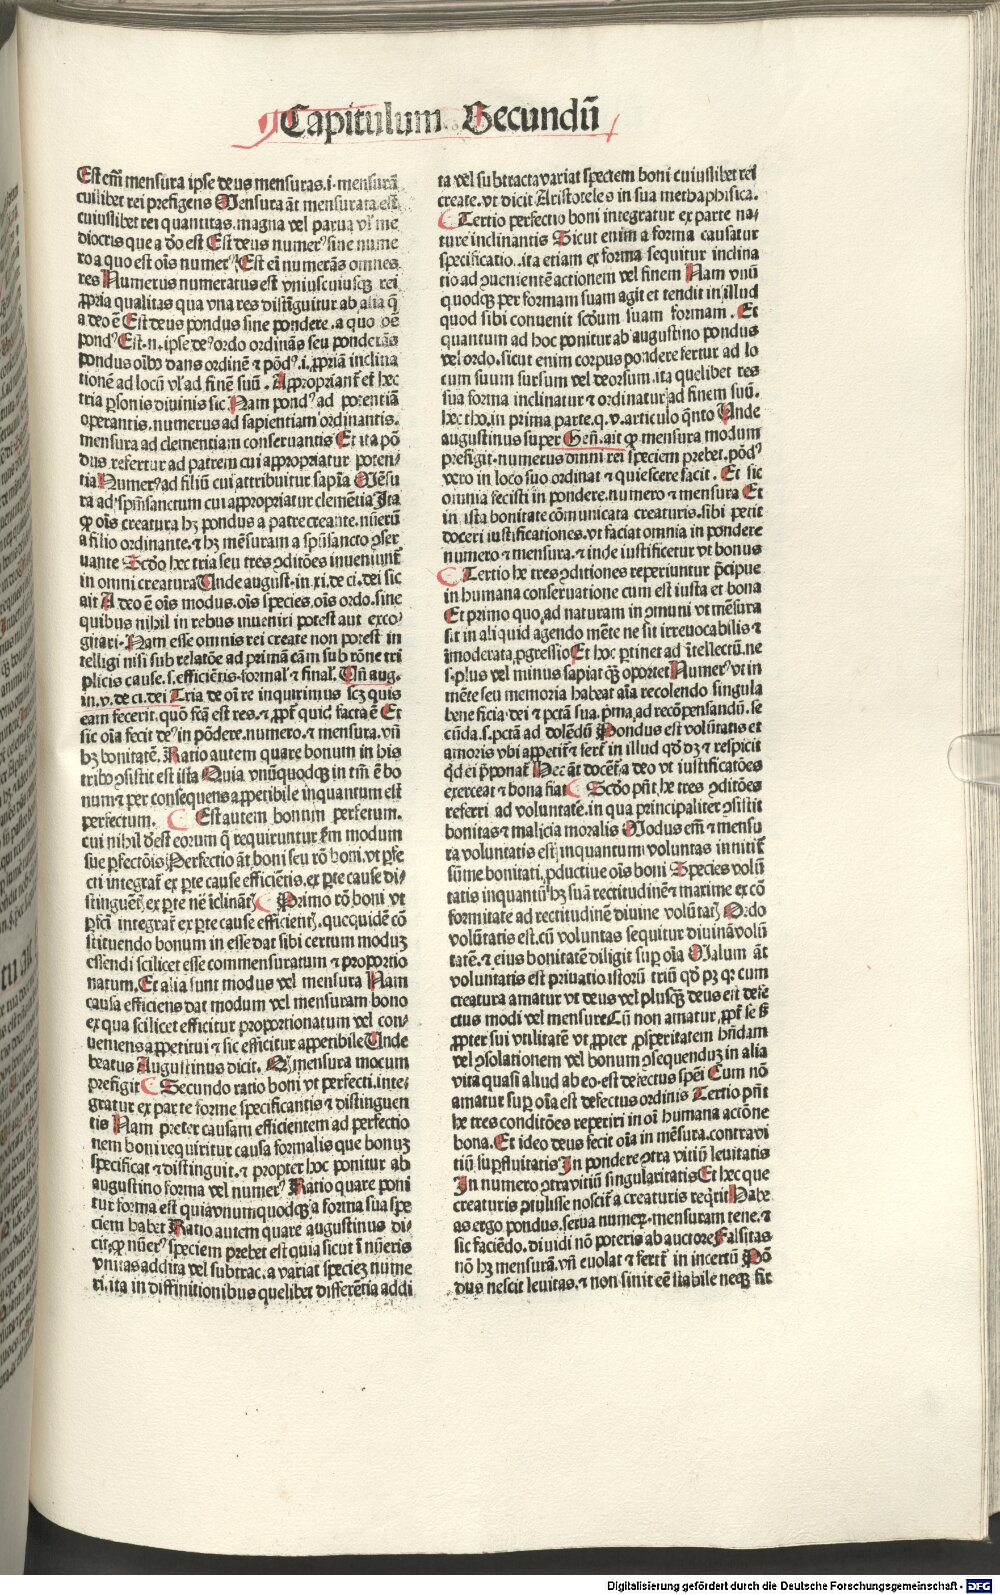 Capitulum Secundū
Est em̄ mensura ipse deus mensuras.i. mensurā
cuilibet rei prefigens Mensura āt mensurata est
cuiuslibet rei quantitas. magna vel parua vl' me
diocris que a deo est Est deus numerꝰ sine nume
ro a quo est oīs numerꝰ Est ei numerās omnes
res Numerus numeratus est vniuscuiusqꝫ rei
ꝓpria qualitas qua vna res distīguitur ab alia q̄
a deo ē Est deus pondus sine pondere. a quo oē
pondꝰ Est.n. ipse deꝰ ordo ordinās seu ponderās
pondus oībꝰ dans ordinē ⁊ pōdꝰ.i. ꝓpriā inclina
tionē ad locū vl' ad finē suū. Appropriant̄ et hec
tria ꝑsonis diuinis sic. Nam pondꝰ ad potentiā
operantis. numerus ad sapientiam ordinantis.
mensura ad clementiam conseruantis Et ita pō
dus refertur ad patrem cui appropriatur poten-
tia Numerꝰ ad filiū cui attribuitur sapīa Mēsu
ra ad spm̄sanctum cui appropriatur clemētia Ita
ꝙ oīs creatura hꝫ pondus a patre creante. nūerū
a filio ordinante. ⁊ hꝫ mēsuram a spūsancto ꝯser
uante Scd̄o hec tria seu tres ꝯditōes inueniunt̄
in omni creatura Unde august. in xi. de ci. dei sic
ait A deo ē oīs modus. oīs species. oīs ordo. sine
quibus nihil in rebus inueniri potest aut exco-
gitari. Nam esse omnis rei create non potest in
telligi nisi sub relatōe ad primā cām sub rōne tri
plicis cause. s. efficiētis. formal' ⁊ final' Un̄ aug.
in. v. de ci. dei Tria de oī re inquirimus scꝫ quis
eam fecerit. quō fcā est res. ⁊ ꝓpt̄ quid facta ē Et
sic oīa fecit deꝰ in pōdere. numero. ⁊ mensura. vn̄
hꝫ bonitatē. Ratio autem quare bonum in his
tribꝰ ꝯsistit est ista Quia vnūquodqꝫ in tm̄ ē bo
num ⁊ per consequens appetibile inquantum est
perfectum. Est autem bonum perfectum.
cui nihil deest eorum q̄ requiruntur sm̄ modum
sue ꝑfectōis Perfectio āt boni seu rō boni. vt ꝑfe
cti integrat̄ ex ꝑte cause efficiētis. ex ꝑte cause di-
stinguētꝭ ex ꝑte nē iclināt Primo rō boni vt
ꝑfcī integrat̄ ex ꝑte cause efficientꝭ. quicquid cō
stituendo bonum in esse dat sibi certum moduꝫ
essendi scilicet esse commensuratum ⁊ proportio
natum. Et alia sunt modus vel mensura Nam
causa efficiens dat modum vel mensuram bono
ex qua scilicet efficitur proportionatum vel con-
ueniens appetitui ⁊ sic efficitur appetibile Unde
beatus Augustinus dicit. Q mensura modum
prefigit Secundo ratio boni vt perfecti. inte-
gratur ex parte forme specificantis ⁊ distinguen
tis Nam preter causam efficientem ad perfectio
nem boni requiritur causa formalis que bonuꝫ
specificat ⁊ distinguit. ⁊ propter hoc ponitur ab
augustino forma vel numerꝰ Ratio quare poni
tur forma est quia vnumquodqꝫ a forma sua spe
ciem habet Ratio autem quare augustinus di-
cit ꝙ nūerꝰ speciem prebet est quia sicut ī nūeris
vnitas addita vel subtracta variat specieꝫ nume
ri. ita in diffinitionibus quelibet differētia addi
ta vel subtracta variat speciem boni cuiuslibet rei
create. vt dicit Aristoteles in sua methaphisica.
Tertio perfectio boni integratur ex parte na-
ture inclinantis Sicut enim a forma causatur
specificatio. ita etiam ex forma sequitur inclina
tio ad ꝯuenientē actionem vel finem Nam vnū
quodqꝫ per formam suam agit et tendit in illud
quod sibi conuenit scd̄um suam formam. Et
quantum ad hoc ponitur ab augustino pondus
vel ordo. sicut enim corpus pondere fertur ad lo
cum suum sursum vel deorsum. ita quelibet res
sua forma inclinatur ⁊ ordinatur ad finem suū.
hec tho. in prima parte. q. v. articulo qn̄to Unde
augustinus super Gen̄. ait ꝙ mensura modum
prefigit. numerus omni rei speciem prebet. pōdꝰ
vero in loco suo ordinat ⁊ quiescere facit. Et sic
omnia fecisti in pondere. numero ⁊ mensura Et
in ista bonitate cōmunicata creaturis. sibi petit
doceri iustificationes. vt faciat omnia in pondere
numero ⁊ mensura. ⁊ inde iustificetur vt bonus
Tertio he tres ꝯditiones reperiuntur p̄cipue
in humana conseruatione cum est iusta et bona
Et primo quo ad naturam in ꝯmuni vt mēsura
sit in aliquid agendo mēte ne sit irreuocabilis ⁊
īmoderata ꝓgressio Et hoc pertinet ad ītellectū. ne
s. plus vel minus sapiat qꝫ oportet Numerꝰ vt in
mēte seu memoria habeat aīa recolendo singula
beneficia dei ⁊ pctā sua. pma ad recōpensandū. se
cūda. s. pctā ad dolēdū Pondus est volūtatis et
amoris vbi appetit̄ ⁊ fert̄ in illud qd̄ dꝫ ⁊ respicit
qd̄ ei p̄ponat̄ Hec āt docet̄ a deo vt iustificatōes
exerceat ⁊ bona fiat Scd̄o pn̄t he tres ꝯditōes
referri ad voluntatē. in qua principaliter ꝯsistit
bonitas ⁊ malicia moralis Modus em̄ ⁊ mensu
ra voluntatis est inquantum voluntas innitit̄
sūme bonitati. ꝓductiue oīs boni Species volū
tatis inquantū hꝫ suā rectitudinē ⁊ maxime ex cō
formitate ad rectitudinē diuine volūtatꝭ Ordo
volūtatis est. cū voluntas sequitur diuinā volū
tatē. ⁊ eius bonitatē diligit suꝑ oīa Malum āt
voluntatis est priuatio istorū triū qd̄ pꝫ qꝛ cum
creatura amatur vt deus vel plusqꝫ deus est defe
ctus modi vel mensure Cū non amatur. ꝓpt̄ se sꝫ
ꝓpter sui vtilitatē vt ꝓpter ꝓsperitatem hn̄dam
vel ꝯsolationem vel bonum ꝯsequenduꝫ in alia
vita quasi aliud ab eo. est defectus spēi Cum nō
amatur suꝑ oīa est defectus ordinis Tertio pn̄t
he tres conditōes reperiri in oī humana actiōne
bona. Et ideo deus fecit oīa in mēsura. contra vi
tiū suꝑfluitatis In pondere ꝯtra vitiū leuitatis
In numero ꝯtra vitiū singularitatis Et hec que
creaturis ꝯtulisse noscit̄ a creaturis req̄rit Habe
as ergo pondus. serua numeꝝ. mensuram tene. ⁊
sic faciēdo. diuidi nō poteris ab auctore Falsitas
nō hꝫ mensurā. vn̄ euolat ⁊ fert̄ in incertū Pō
dus nescit leuitas. ⁊ non sinit eē stabile neqꝫ sit
Digitalisierung gefördert durch die Deutsche Forschungsgemeinschaft - DFG